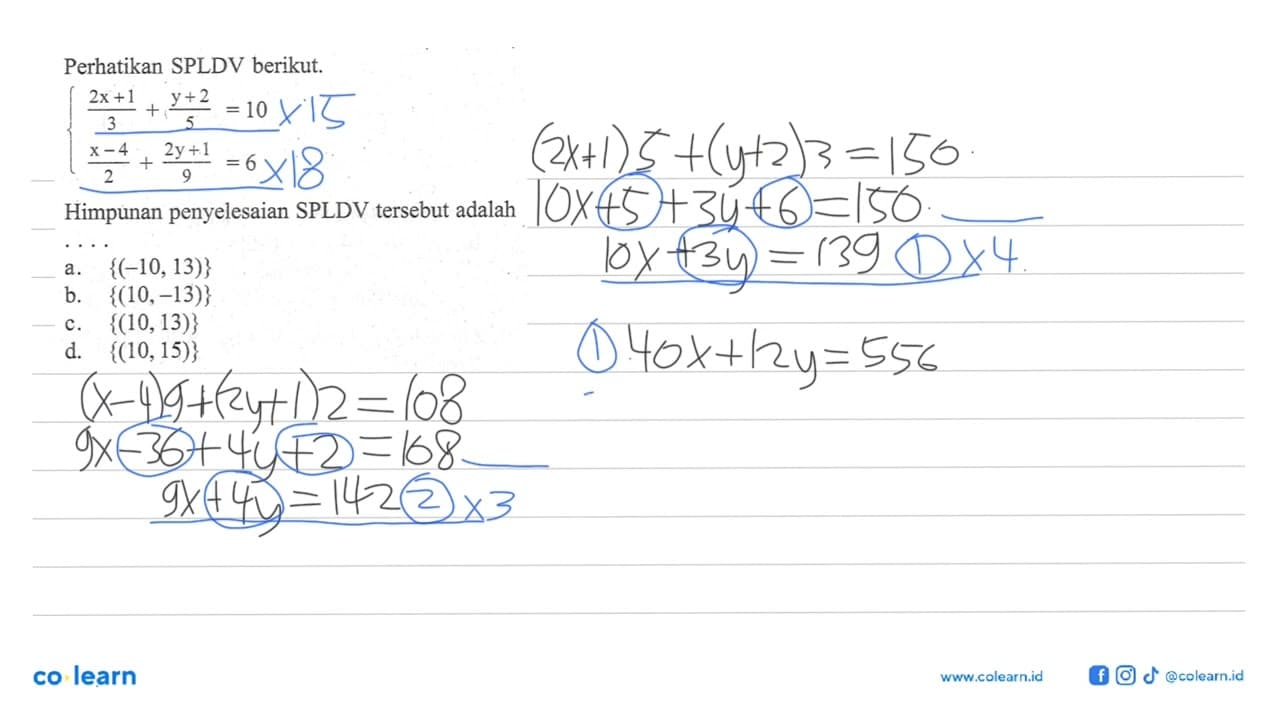 Perhatikan SPLDV berikut.
(2x+1)/3 + (y+2)/5 = 10 ×15
(x−4)/2 + (2y+1)/9 = 6 ×18
Himpunan penyelesaian SPLDV tersebut adalah
. . . .
a. {(−10, 13)}
b. {(10, −13)}
c. {(10, 13)}
d. {(10, 15)}
(x-4)9+(2y+1)2=108
9x-36+4y+2=108
9x+4y=142 ② ×3
(2x+1)5+(y+2)3=150
10x+5+3y+6=150
10x+3y=139 ① ×4
① 40x+12y=556
co·learn
www.colearn.id
@colearn.id